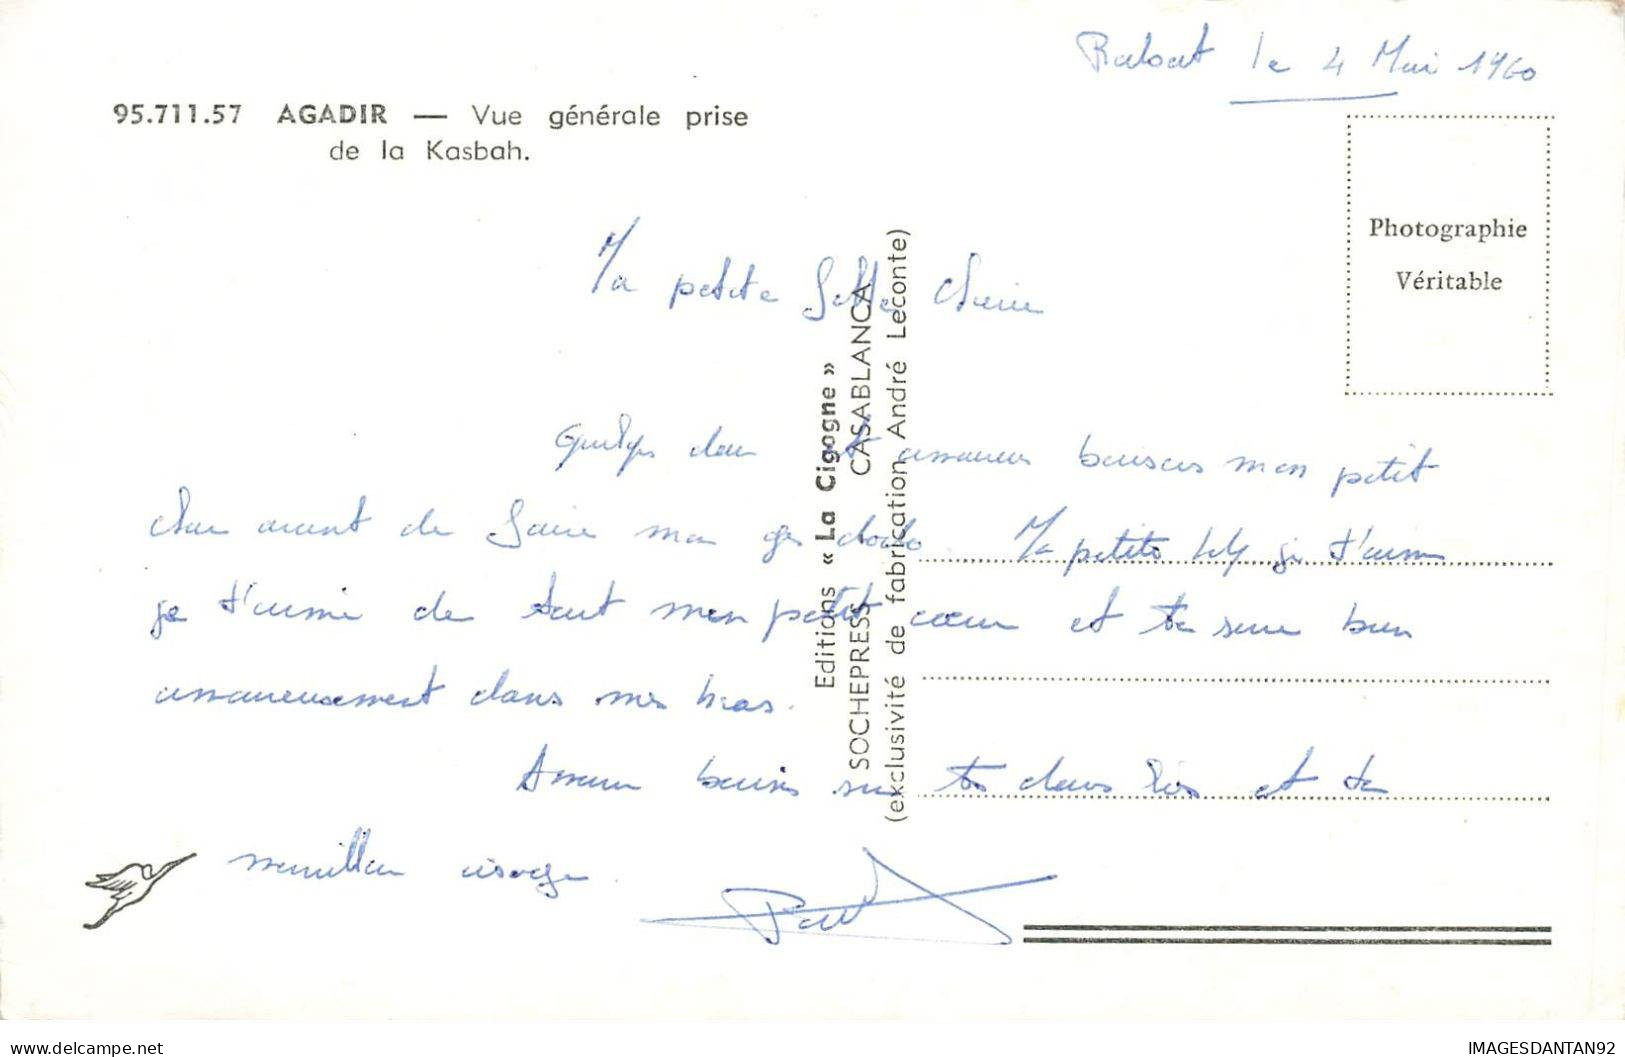 Rabat le 4 Mai 1960
95.711.57 AGADIR — Vue générale prise
de la Kasbah.
Photographie
Véritable
Ma petite chérie
Quelques doux et amoureux baisers mon petit
chou avant de faire mon gros dodo. Ma petite je t'aime
je t'aime de tout mon petit cœur et te serre bien
amoureusement dans mes bras.
baisers sur tes doux et ta
visage.
Paul
Editions « La Cigogne »
SOCHEPRESS CASABLANCA
(exclusivité de fabrication André Leconte)
IMAGESDANTAN92
www.delcampe.net